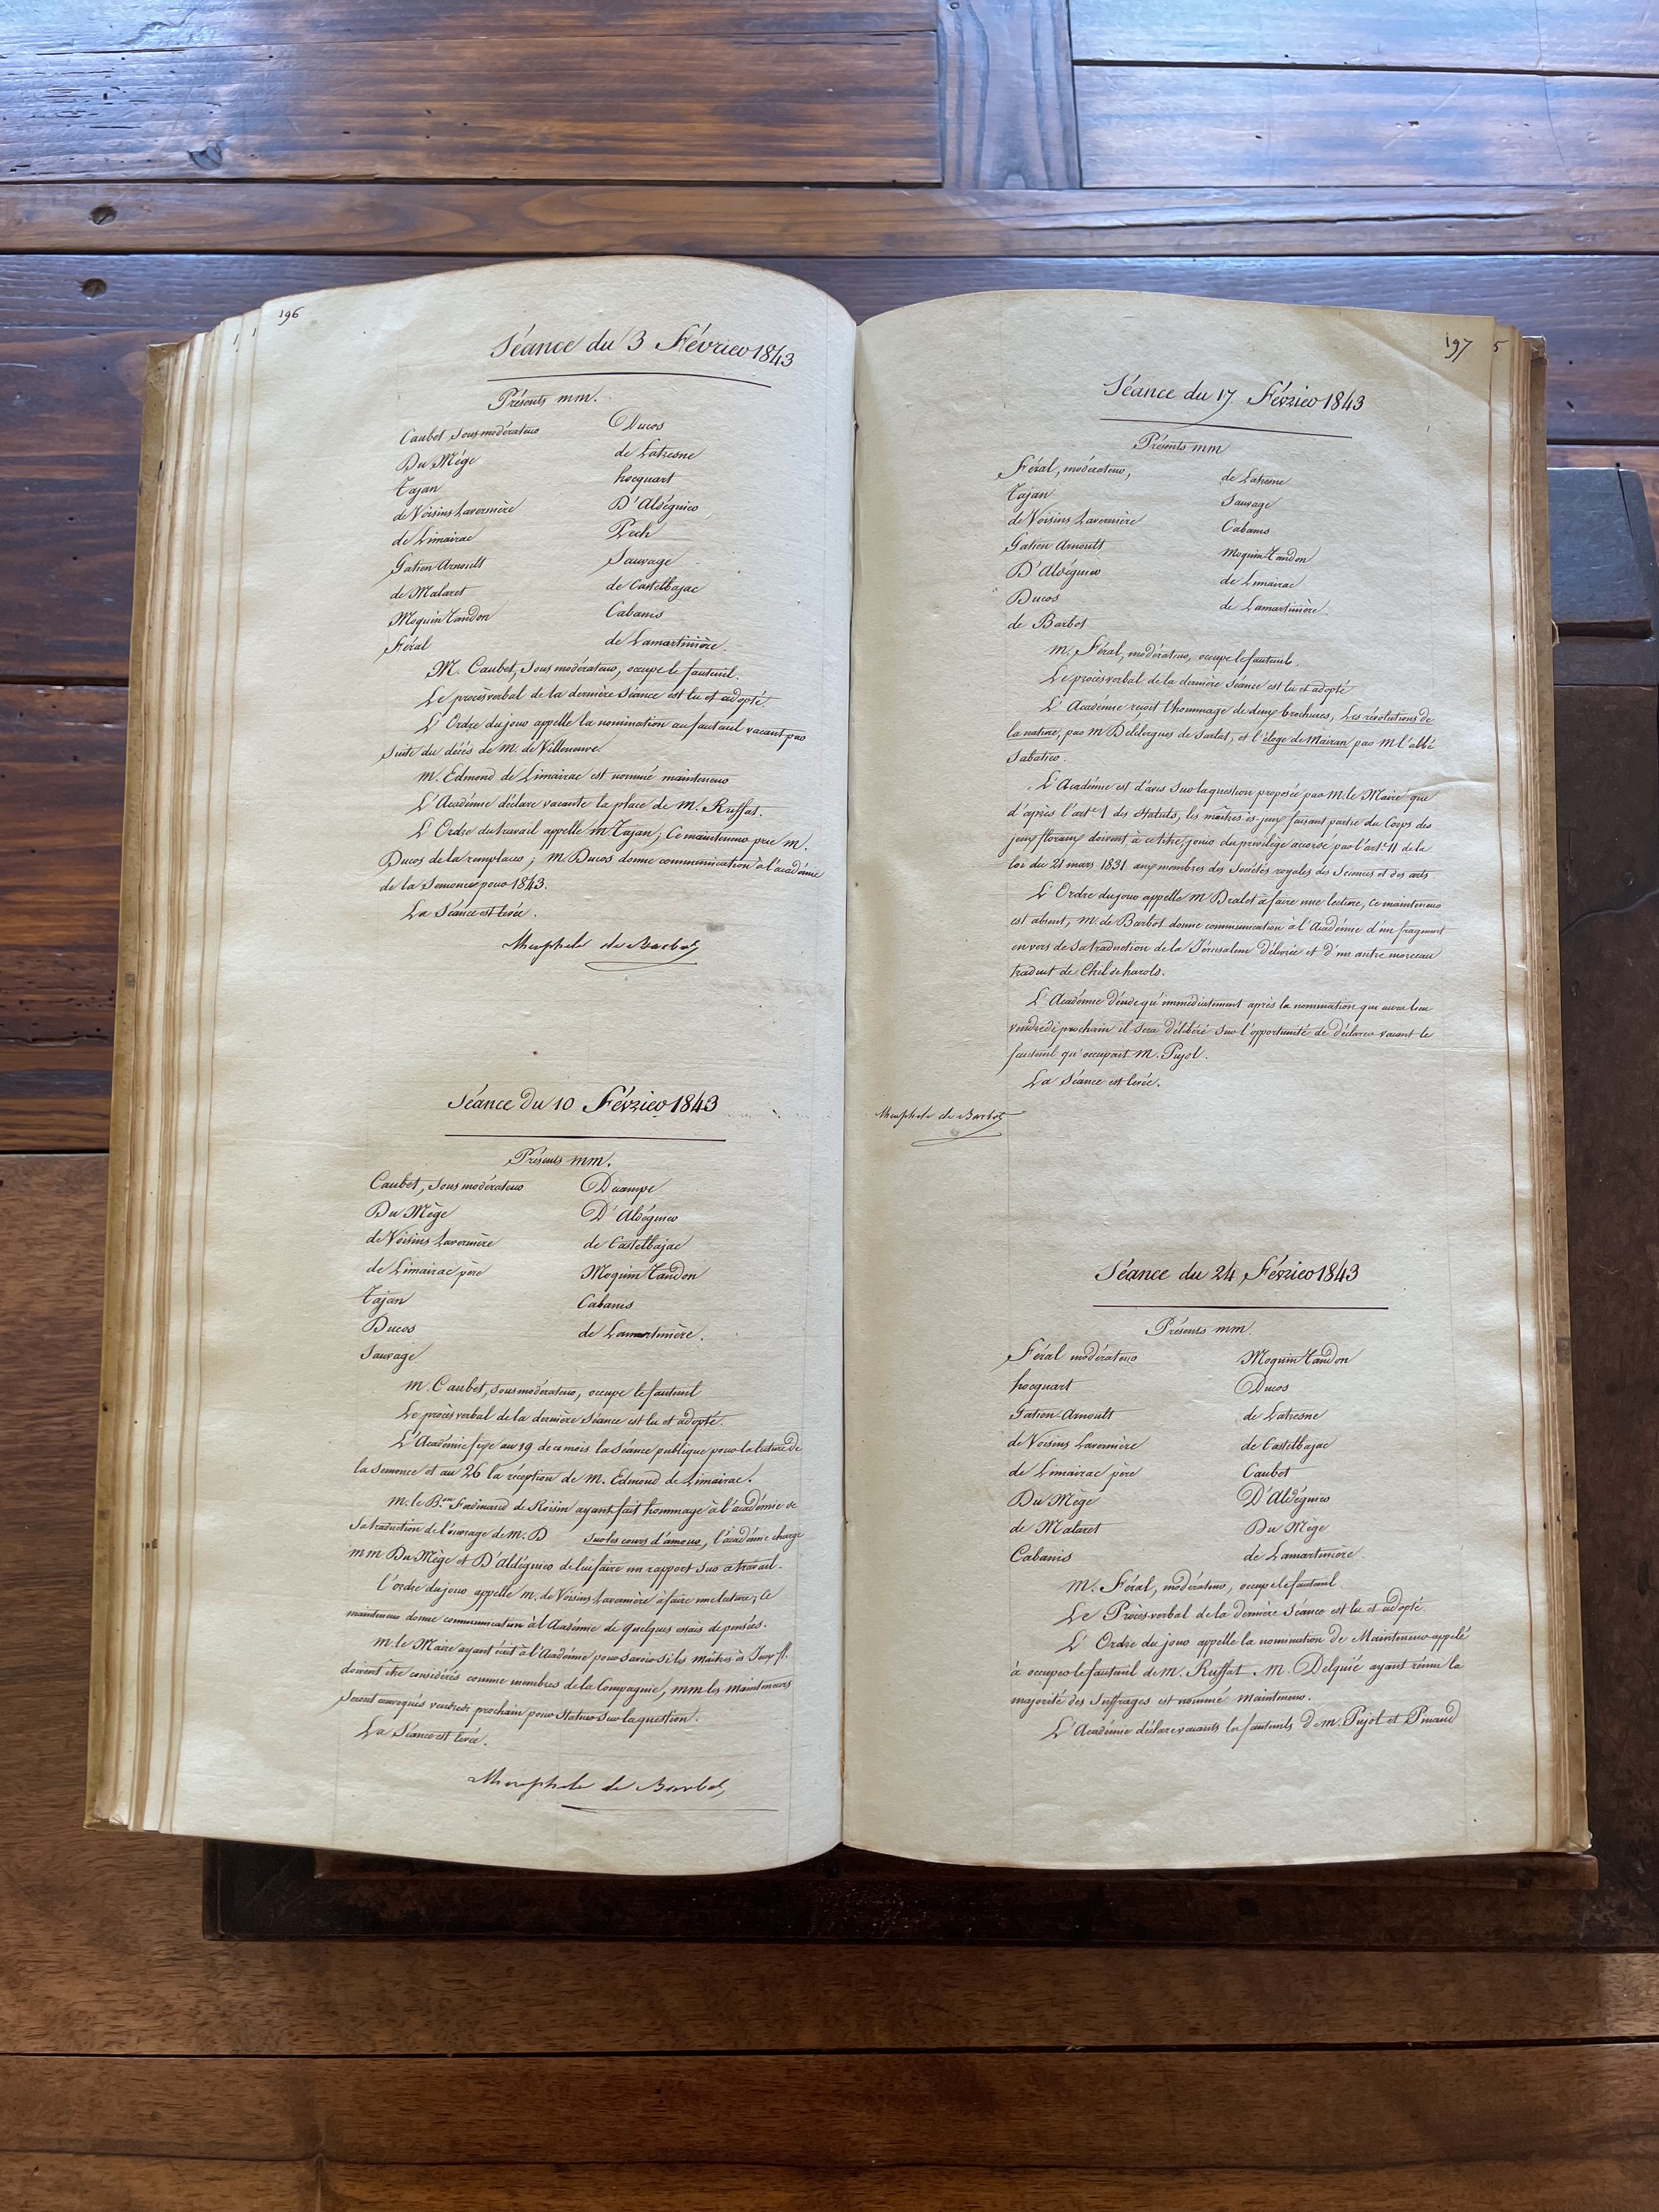 196
Séance du 3 Février 1843
Présents mm.
Caubet sous modérateur
Du Mège
Tajan
de Voisins Lavernière
de Limairac
Gatien Arnoult
de Malaret
Moquin Tandon
Féral
Ducos
de Latresne
hocquart
D'Aldéguier
Pech
Sauvage
de Castelbajac
Cabanis
de Lamartinière.
M. Caubet, sous modérateur, occupe le fauteuil.
Le procès verbal de la dernière Séance est lu et adopté.
L'Ordre du jour appelle la nomination au fauteuil vacant par
suite du décès de M. de Villeneuve
m. Edmond de Limairac est nommé mainteneur
L'Académie déclare vacante la place de M. Ruffat.
L'Ordre du travail appelle m Tajan; Ce mainteneur prie M.
Ducos de la remplacer; m Ducos donne communication à l'académie
de la Semonce pour 1843.
La Séance est levée.
de Barbot
Séance du 10 Février 1843
Présents mm.
Caubet, sous modérateur
Du Mège
de Voisins Lavernière
de Limairac père
Tajan
Ducos
Sauvage
Decampe
D'Aldéguier
de Castelbajac
Moquin Tandon
Cabanis
de Lamartinière.
m. Caubet, sous modérateur, occupe le fauteuil
Le procès verbal de la dernière Séance est lu et adopté.
L'Académie fixe au 19 de ce mois la Séance publique pour la lecture de
la semonce et au 26 la réception de M. Edmond de Limairac.
M. le B.on Ferdinand de Roisin ayant fait hommage à l'académie de
sa traduction de l'ouvrage de M. D sur les cours d'amour, l'académie charge
mm Du Mège et D'Aldéguier de lui faire un rapport sur ce travail.
l'ordre du jour appelle m. de Voisins Lavernière à faire une lecture; Ce
mainteneur donne communication à l'Académie de quelques essais de pensées.
m. le Maire ayant écrit à l'Académie pour savoir si les maîtres ès Jeux fl.
doivent être considérés comme membres de la Compagnie, mm les mainteneurs
seront convoqués vendredi prochain pour statuer sur la question.
La Séance est levée.
de Barbot
197 5
Séance du 17 Février 1843
Présents mm
Féral, modérateur,
Tajan
de Voisins Lavernière
Gatien Arnoult
D'Aldéguier
Ducos
de Barbot
de Latresne
Sauvage
Cabanis
Moquin Tandon
de Limairac
de Lamartinière.
m. Féral, modérateur, occupe le fauteuil.
Le procès verbal de la dernière Séance est lu et adopté
L'Académie reçoit l'hommage de deux brochures, Les révolutions de
la nature, par M Delclergues de Sarlat, et l'éloge de Mairan par M l'abbé
Sabatier.
L'Académie est d'avis sur la question proposée par M. le Maire que
d'après l'art.e 1 des Statuts, les maîtres ès-jeux faisant partie du Corps des
jeux floraux doivent à ce titre, jouir du privilège accordé par l'art.e 11 de la
loi du 21 mars 1831 aux membres des Sociétés royales des Sciences et des arts
L'Ordre du jour appelle M Dralet à faire une lecture, ce mainteneur
est absent, M. de Barbot donne communication à l'Académie d'un fragment
en vers de sa traduction de la Jérusalem délivrée et d'un autre morceau
traduit de Child harold.
L'Académie décide qu'immédiatement après la nomination qui aura lieu
vendredi prochain il sera délibéré sur l'opportunité de déclarer vacant le
fauteuil qu'occupait M. Pujol.
La Séance est levée.
de Barbot
Séance du 24 Février 1843
Présents mm
Féral modérateur
hocquart
Gatien-Arnoult
de Voisins Lavernière
de Limairac père
Du Mège
de Malaret
Cabanis
Moquin Tandon
Ducos
de Latresne
de Castelbajac
Caubet
D'Aldéguier
Du Mège
de Lamartinière.
M. Féral, modérateur, occupe le fauteuil.
Le Procès-verbal de la dernière Séance est lu et adopté.
L'Ordre du jour appelle la nomination de Mainteneur appelé
à occuper le fauteuil de M. Ruffat. M. Delquié ayant réuni la
majorité des suffrages est nommé mainteneur.
L'Académie déclare vacants les fauteuils de m. Pujol et Pinaud